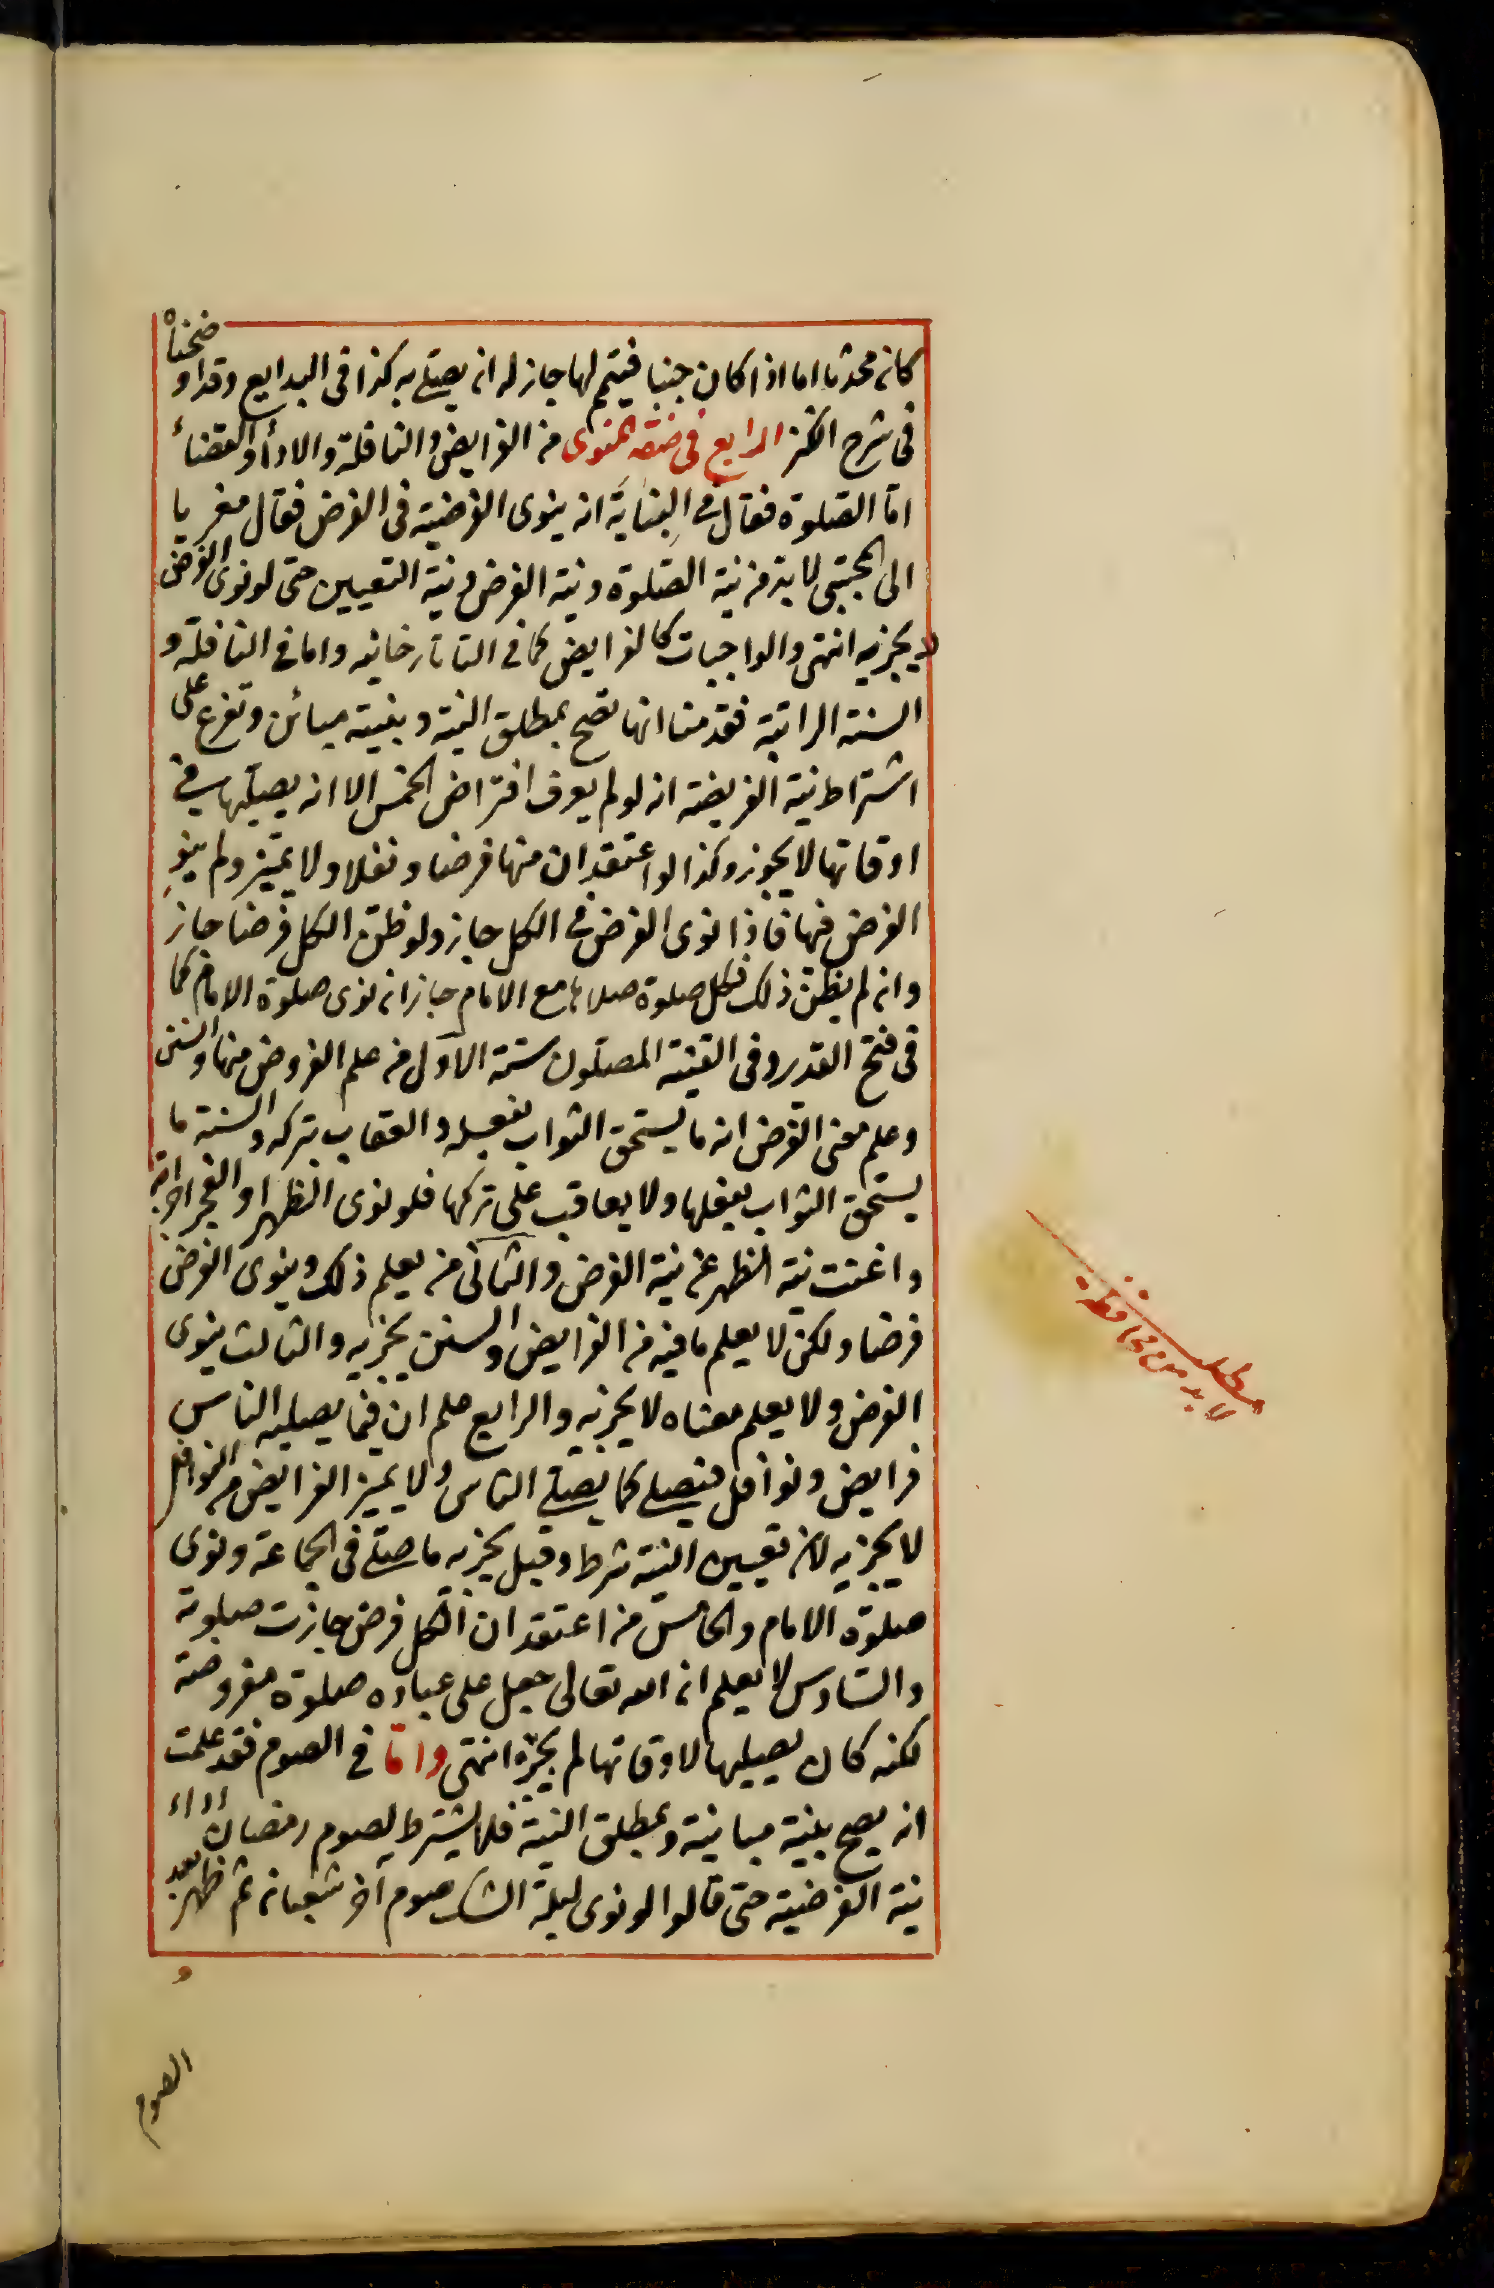 كان محدثا اما اذا كان جنبا فتيمم لها جاز له ان يصلي به كذا في البدايع وقد اوضحناه
في شرح الكنز الرابع في صفة المنوي من الفرايض والنافلة والاداء والقضاء
امّا الصّلوة فقال في البناية انه ينوى الفرضية في الفرض فقال معزيا
الى المجتبى لا بد من نية الصّلوة ونية الفرض ونية التعيين حتى لو نوى الفرض
لا يجزيه انتهى والواجبات كالفرايض كما في التاتارخانيه واما في النافلة و
السنة الراتبة فقدمنا انها تصح بمطلق النية وبنية مبائن وتفرع على
اشتراط نية الفريضة انه لو لم يعرف افتراض الخمس الا انه يصليها في
اوقاتها لا يجوز وكذا لو اعتقد ان منها فرضا ونفلا ولا يميّز ولم ينوِ
الفرض فيها فاذا نوى الفرض في الكل جاز ولو ظنّ الكل فرضا جاز
وان لم يظنّ ذلك فكل صلوة صلاها مع الامام جاز ان نوى صلوة الامام كما
في فتح القدير وفي القنية المصلّون ستة الاول من علم الفروض منها والسنن
وعلم معنى الفرض انه ما يستحق الثواب بفعله والعقاب بتركه والسنة ما
يستحق الثواب بفعلها ولا يعاقب على تركها فلو نوى الظهر او الفجر اجزأته
واغنت نية الظهر عن نية الفرض والثاني من يعلم ذلك وينوى الفرض
فرضا ولكن لا يعلم ما فيه من الفرايض والسنن يجزيه والثالث ينوى
الفرض ولا يعلم معناه لا يجزيه والرابع علم ان فيما يصليه الناس
فرايض ونوافل فيصلي كما يصلّي الناس ولا يميز الفرايض من النوافل
لا يجزيه لان تعيين النية شرط وقيل يجزيه ما صلّى في الجماعة ونوى
صلوة الامام والخامس من اعتقد ان الكل فرض جازت صلوته
والسّادس لا يعلم ان الله تعالى جعل على عباده صلوة مفروضة
لكنه كان يصليها لاوقاتها لم يجزه انتهى وامّا في الصوم فقد علمت
انه يصح بنية مباينة وبمطلق النية فلا يشترط لصوم رمضان اداء
نية الفرضية حتى قالوا لو نوى ليلة الشك صوم آخر شعبان ثم ظهر بعد
الصوم
مطلب
لا بد من محافظة